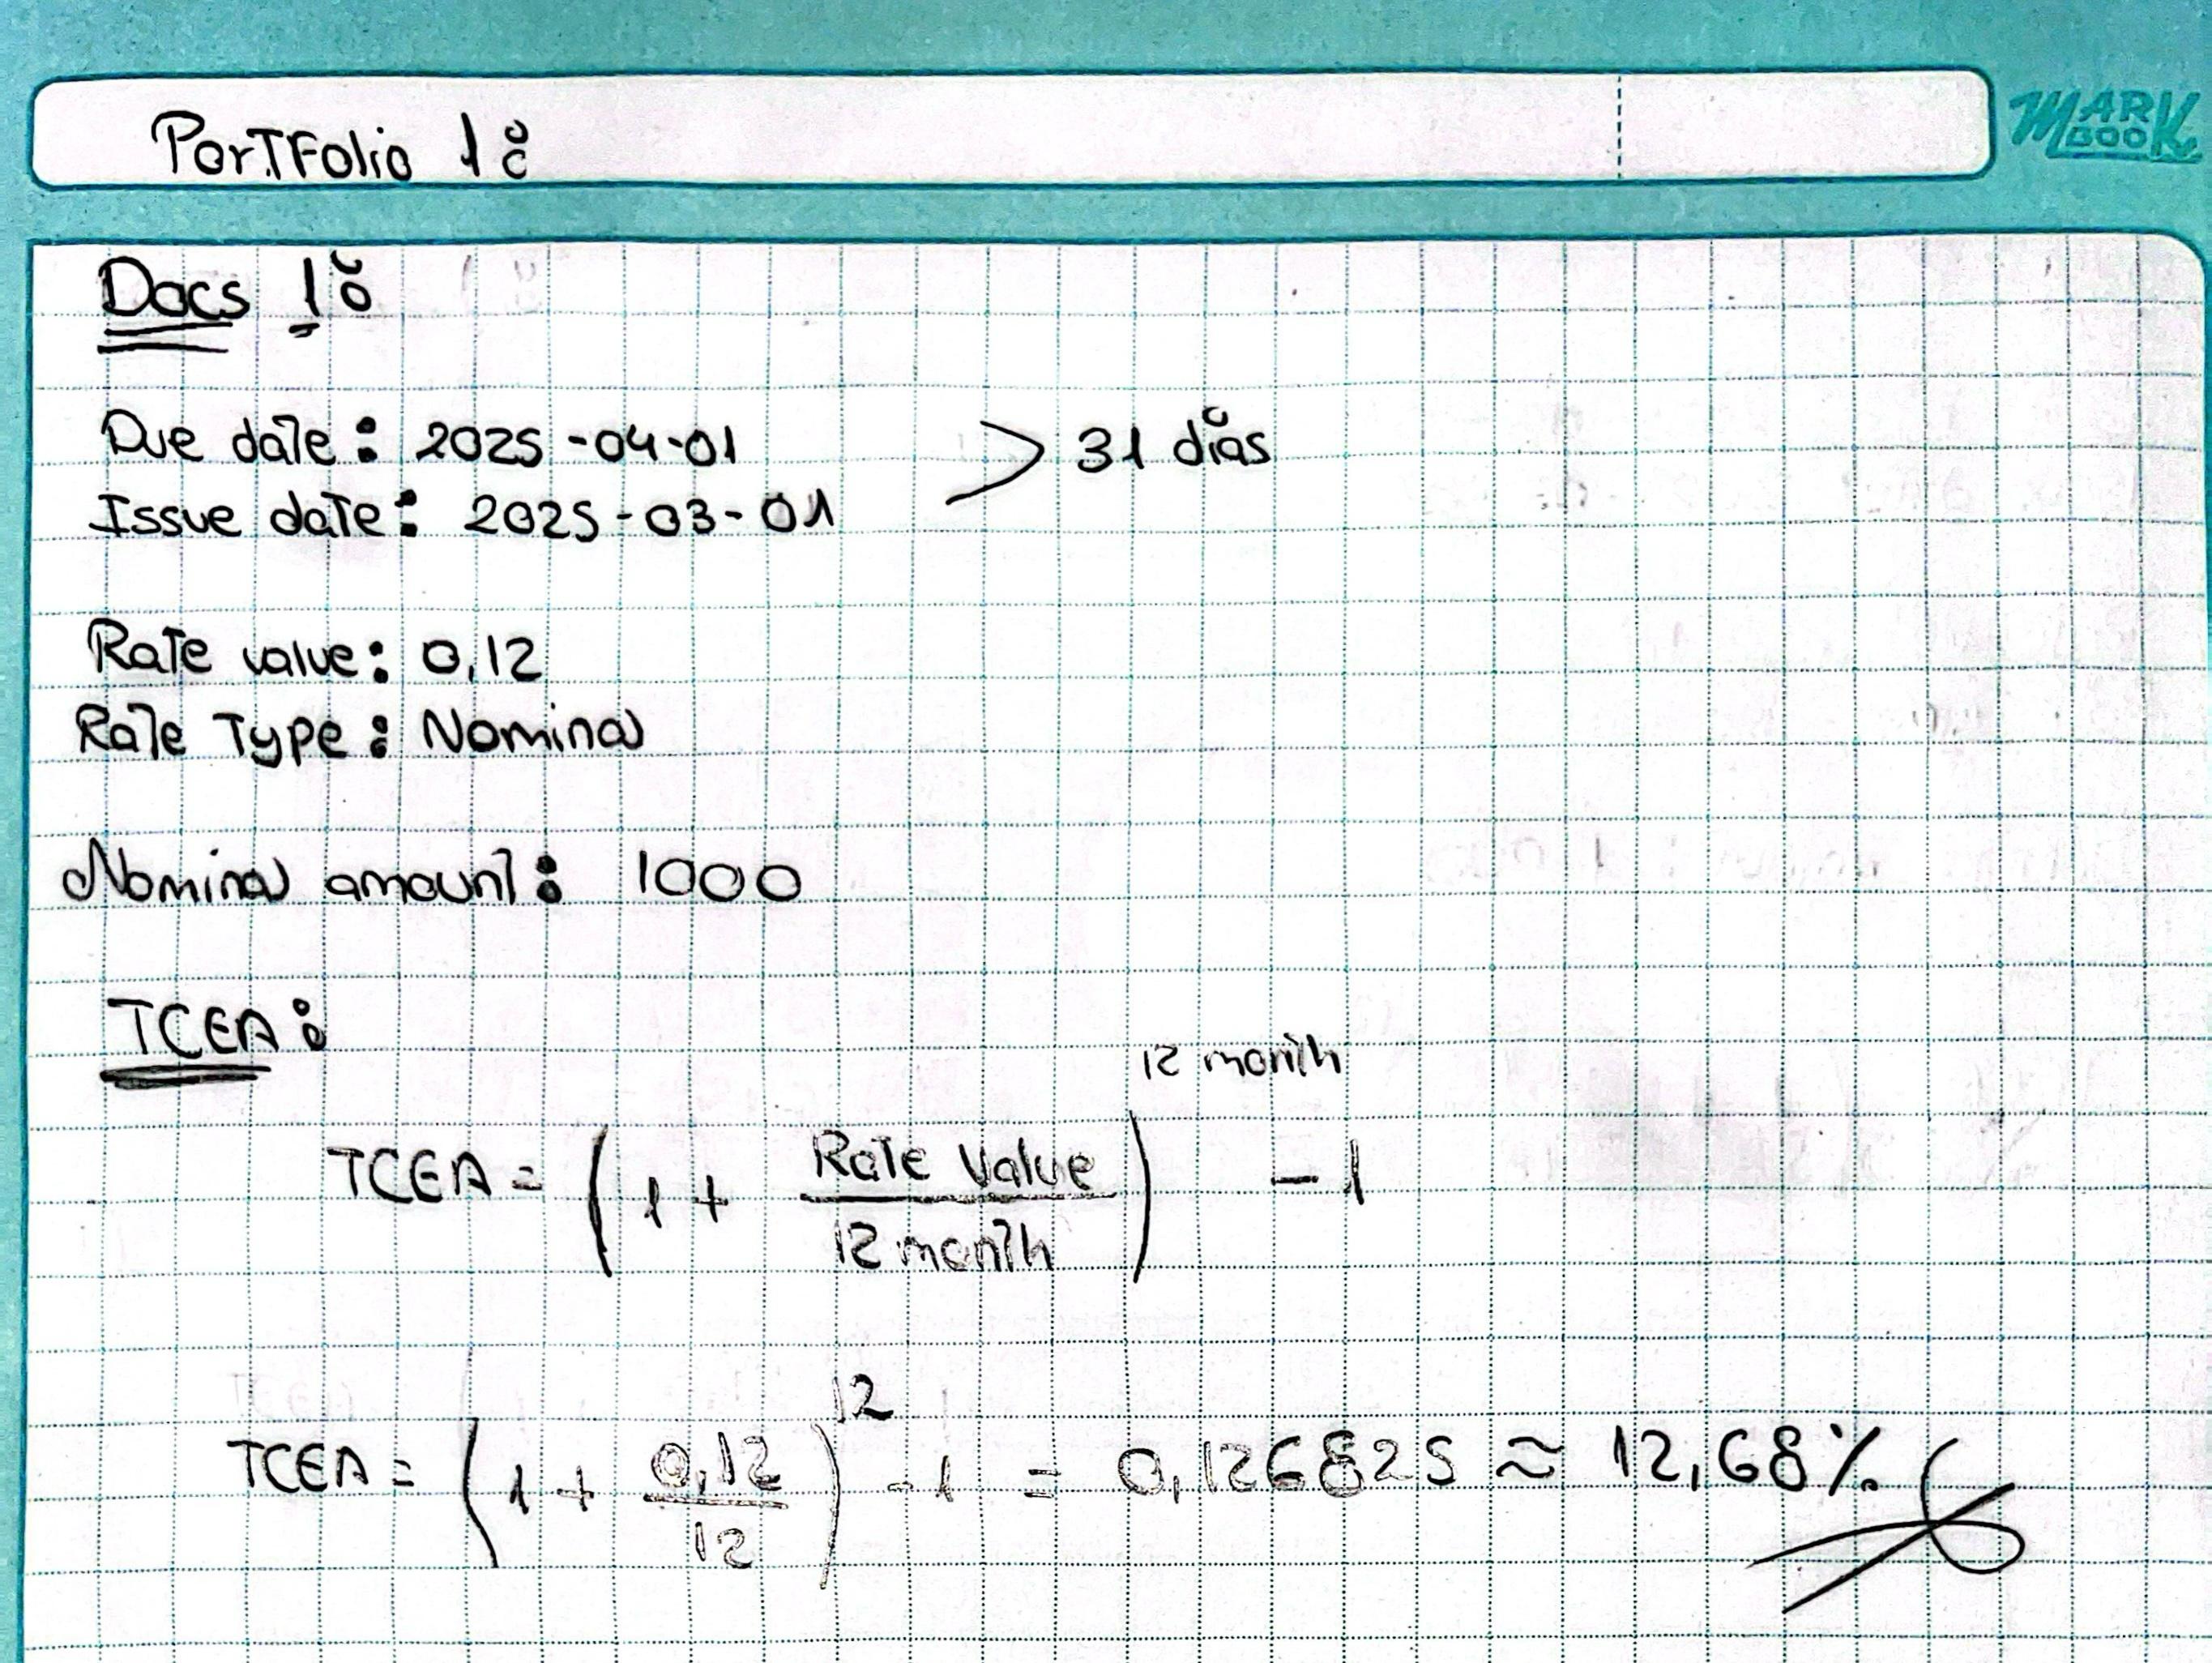 PorTFolio 1:
MARK BOOK
Docs 1:
Due date: 2025-04-01 > 31 días
Issue date: 2025-03-01
Rate value: 0,12
Rate Type: Nominal
Nominal amount: 1000
TCEA:
TCEA = (1 + Rate Value / 12 month)^12 month - 1
TCEA = (1 + 0,12 / 12)^12 - 1 = 0,126825 ≈ 12,68%